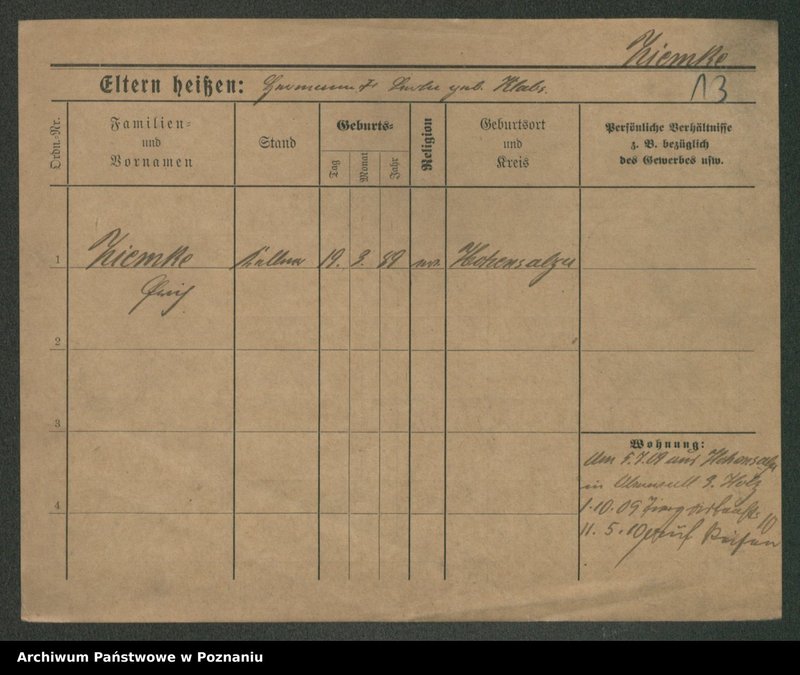 Ziemke
13
Eltern heißen: geb. Klabs.
Ordn.-Nr.
Familien-
und
Vornamen
Stand
Geburts-
Tag
Monat
Jahr
Religion
Geburtsort
und
Kreis
Persönliche Verhältnisse
z. B. bezüglich
des Gewerbes usw.
1 Ziemke Kellner 19. 9. 89 ev. Hohensalza
2
3
4
Wohnung:
Am 5.7.09 aus Hohensalza
in
1.10.09
11.5.10 auf Reisen
Archiwum Państwowe w Poznaniu